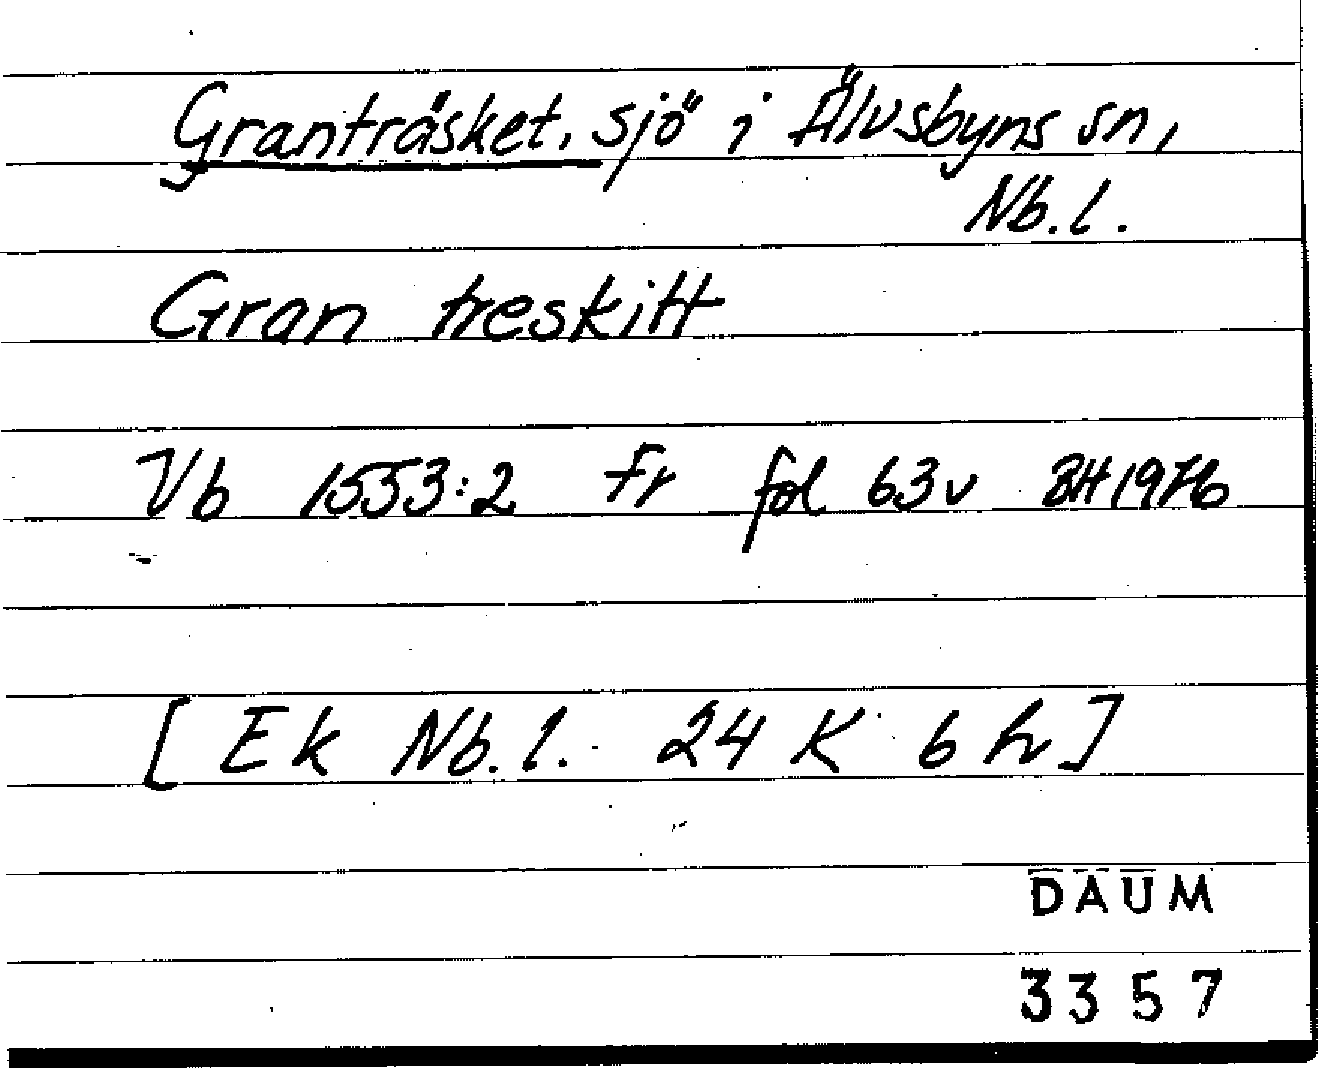 Granträsket, sjö i Älvsbyns sn,
Nb.l.
Gran treskitt
Vb 1553:2 Fr fol 63v BH 1976
[Ek Nb.l. 24 K 6 h]
DAUM
3357